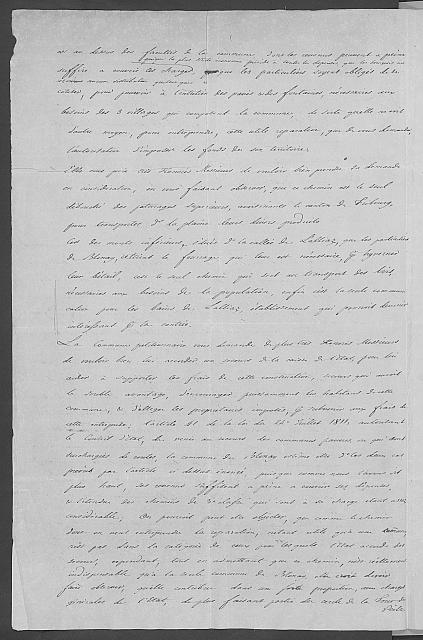 au dessus des facultés de la commune, dont les revenus peuvent à peine
suffire à couvrir les charges, que les particuliers soyent obligés de se
cotiser, pour pourvoir à l'entretien des puits et des fontaines nécessaires aux
besoins des 3 villages qui composent la commune, de sorte qu'elle n'a
d'autre moyen, pour entreprendre cette utile réparation, que de vous demander
l'autorisation d'imposer les fonds de son territoire.
Elle vous prie Très Honorés Messieurs de vouloir bien prendre sa demande
en considération, en vous faisant observer, que ce chemin est le seul
débouché des paturages supérieurs, avoisinants le canton de Fribourg,
pour transporter dans la plaine leurs divers produits
des monts inférieurs, situés dans la vallée de l'Alliaz, que les particuliers
de Blonay, retirent le fourrage qui leur est nécessaire, pour hyverner
leur bétail, est le seul chemin qui sert au transport des bois
nécessaires aux besoins de la population, enfin c'est la seule communi-
cation pour les bains de l'Alliaz, établissement qui pourrait devenir
intéressant pour la contrée.
La Commune pétitionnaire vous demande de plus Très Honorés Messieurs
de vouloir bien lui accorder un secours de la caisse de l'Etat, pour lui
aider à supporter les frais de cette construction, secours qui aurait
le double avantage, d'encourager puissamment les habitans de cette
commune, & d'alléger les propriétaires imposés, pour subvenir aux frais de
cette entreprise. L'article 41 de la loi du Juillet 1811, autorisant
le Conseil d'Etat, de venir au secours des communes pauvres ou qui sont
surchargées de routes, la commune de Blonay estime être dans le cas
prévu par l'article ci dessus énoncé, puisque comme nous l'avons dit
plus haut, ses revenus suffisent à peine à couvrir ses dépenses,
l'étendue des chemins de classe qui sont à sa charge étant assez
considérable, On pourrait peut être objecter, que comme le chemin
dont on veut entreprendre la réparation, n'étant utile qu'à une commune,
n'est pas dans la catégorie de ceux pour lesquels l'Etat accorde des
secours, cependant, tout en admettant que ce chemin, n'est réellement
indispensable qu'à la seule commune de Blonay, elle croit devoir
faire observer, qu'elle contribue dans une forte proportion, aux charges
générales de l'Etat, de plus faisant partie du cercle de la Tour de
Peilz